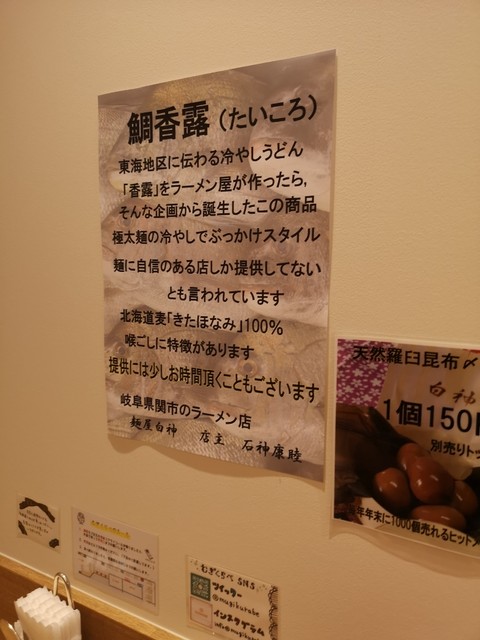 鯛香露（たいころ）
東海地区に伝わる冷やしうどん
「香露」をラーメン屋が作ったら,
そんな企画から誕生したこの商品
極太麺の冷やしでぶっかけスタイル
麺に自信のある店しか提供してない
とも言われています
北海道麦「きたほなみ」100%
喉ごしに特徴があります
提供には少しお時間頂くこともございます
岐阜県関市のラーメン店
麺屋白神　店主　石神康睦
天然羅臼昆布〆
1個150
別売りト
年年末に1000個売れるヒット
むぎくらべ SNS
ツイッター
@mugikurabe
インスタグラム